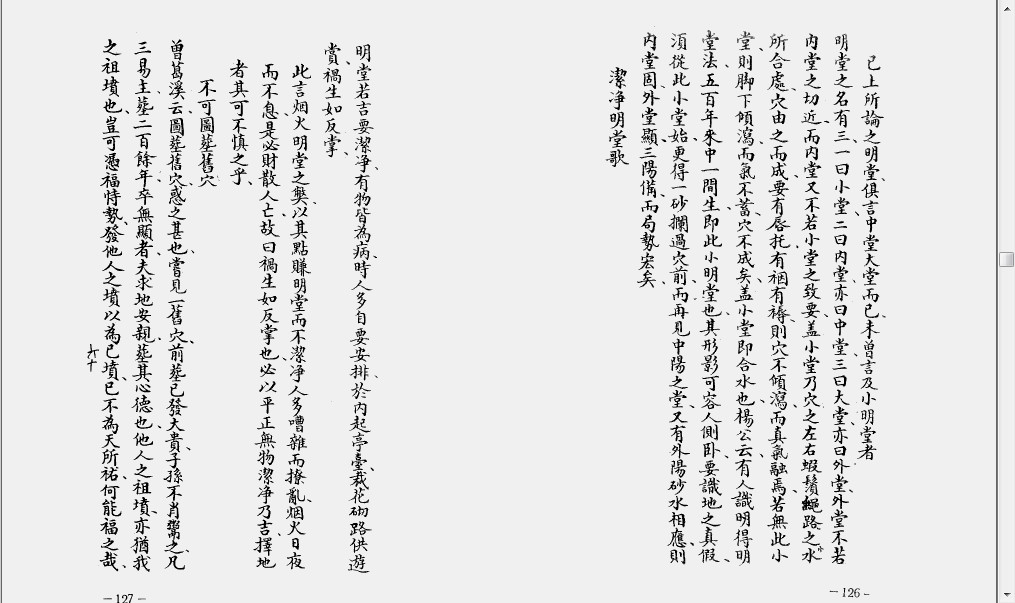 已上所論之明堂、俱言中堂大堂而已、未曾言及小明堂者
明堂之名有三、一曰小堂、二曰內堂、亦曰中堂、三曰大堂、亦曰外堂、外堂不若
內堂之切近、而內堂又不若小堂之致要、蓋小堂乃穴之左右蝦鬚蠅路之水
所合處、穴由之而成、要有唇托、有裀有褥、則穴不傾瀉、而真氣融焉、若無此小
堂、則脚下傾瀉、而氣不蓄、穴不成矣、蓋小堂即合水也、楊公云、有人識明得明
堂法、五百年來中一間生、即此小明堂也、其形影可容人側卧、要識地之真假、
須從此小堂始、更得一砂攔過穴前、而再見中陽之堂、又有外陽砂水相應、則
內堂固、外堂顯、三陽備、而局勢宏矣、
潔净明堂歌
－126－
明堂若吉要潔净、有物皆為病、時人多自要安排、於內起亭臺、栽花砌路供遊
賞、禍生如反掌、
此言烟火明堂之弊、以其點賺明堂而不潔净、人多嘈雜而撩亂、烟火日夜
而不息、是必財散人亡、故曰禍生如反掌也、必以平正無物潔净乃吉、擇地
者其可不慎之乎、
不可圖塟舊穴
曾葛溪云、圖塟舊穴、惑之甚也、嘗見一舊穴、前塟已發大貴、子孫不肖鬻之、凡
三易主、塟二百餘年、卒無顯者、夫求地安親、塟其心德也、他人之祖墳、亦猶我
之祖墳也、豈可憑福恃勢、發他人之墳以為己墳、已不為天所祐、何能福之哉、
六十
－127－